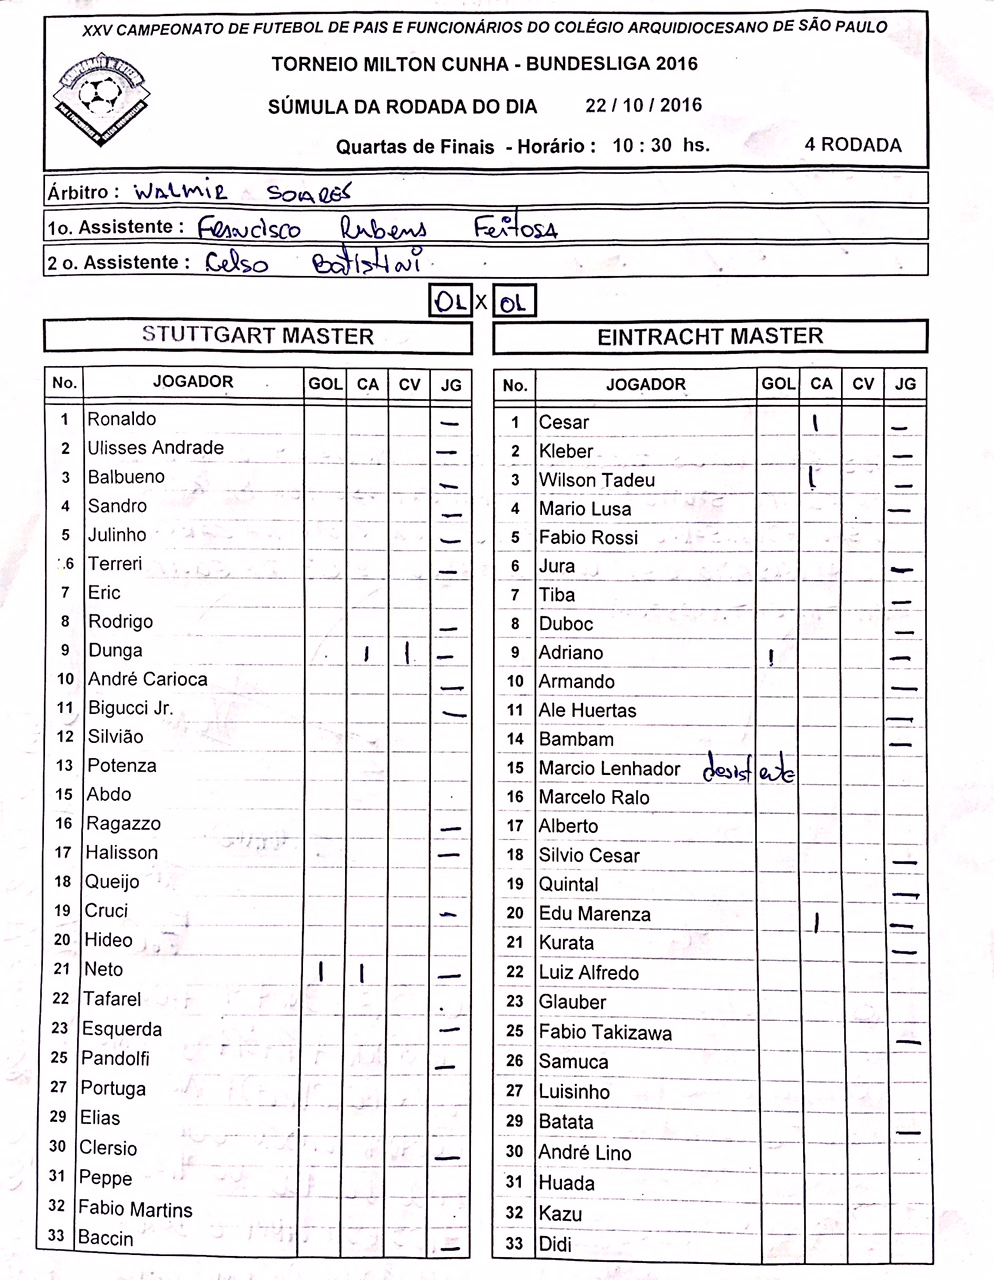 XXV CAMPEONATO DE FUTEBOL DE PAIS E FUNCIONÁRIOS DO COLÉGIO ARQUIDIOCESANO DE SÃO PAULO
TORNEIO MILTON CUNHA - BUNDESLIGA 2016
SÚMULA DA RODADA DO DIA 22 / 10 / 2016
Quartas de Finais - Horário : 10 : 30 hs. 4 RODADA
Árbitro : WALMIR SOARES
1o. Assistente : Francisco Rubens Feitosa
2 o. Assistente : Celso Batistini
01 X 01
STUTTGART MASTER
No. JOGADOR GOL CA CV JG
1 Ronaldo —
2 Ulisses Andrade —
3 Balbueno —
4 Sandro —
5 Julinho —
6 Terreri —
7 Eric
8 Rodrigo —
9 Dunga | | —
10 André Carioca —
11 Bigucci Jr. —
12 Silvião
13 Potenza
15 Abdo
16 Ragazzo —
17 Halisson —
18 Queijo
19 Cruci —
20 Hideo
21 Neto | | —
22 Tafarel
23 Esquerda —
25 Pandolfi —
27 Portuga
29 Elias
30 Clersio —
31 Peppe
32 Fabio Martins
33 Baccin —
EINTRACHT MASTER
No. JOGADOR GOL CA CV JG
1 Cesar | —
2 Kleber —
3 Wilson Tadeu | —
4 Mario Lusa —
5 Fabio Rossi
6 Jura —
7 Tiba —
8 Duboc —
9 Adriano | —
10 Armando —
11 Ale Huertas —
14 Bambam —
15 Marcio Lenhador desistente
16 Marcelo Ralo
17 Alberto
18 Silvio Cesar —
19 Quintal —
20 Edu Marenza | —
21 Kurata —
22 Luiz Alfredo
23 Glauber
25 Fabio Takizawa —
26 Samuca
27 Luisinho
29 Batata —
30 André Lino
31 Huada
32 Kazu
33 Didi